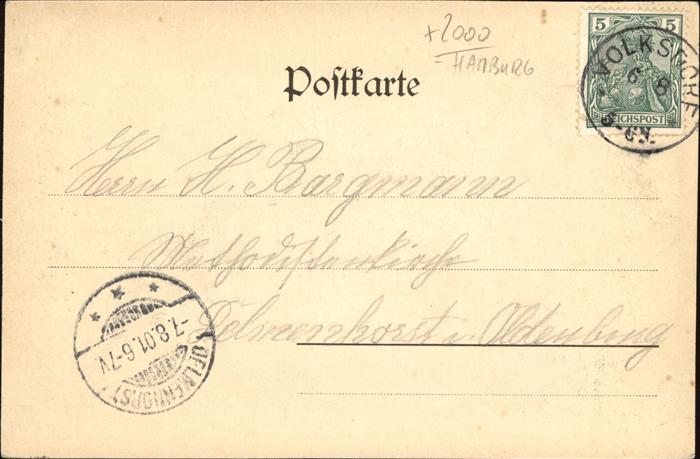 +2000
- HAMBURG
5 5
VOLKSDORF
6 8
5-6N.
REICHSPOST
Postkarte
Herrn H. Bargmann
Methodistenkirche
Delmenhorst i. Oldenburg
-7.8.01.6-7V
DELMENHORST